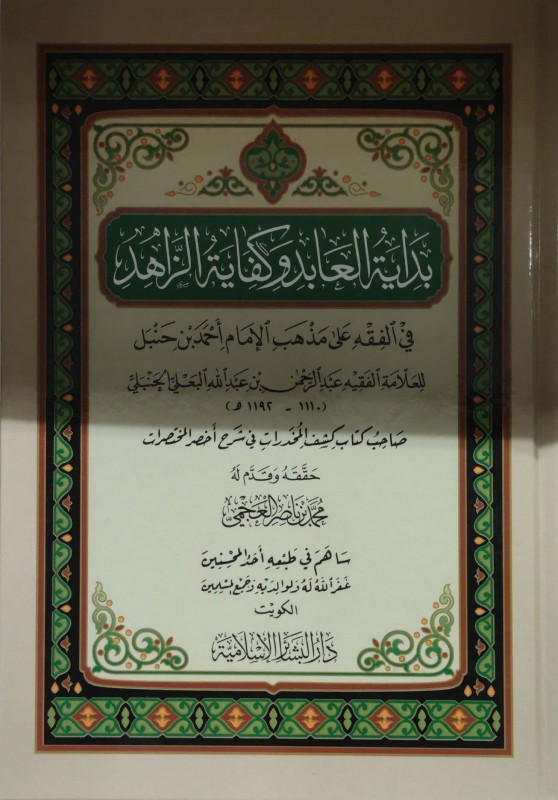 بداية العابد وكفاية الزاهد
في الفقه على مذهب الإمام أحمد بن حنبل
للعلامة الفقيه عبد الرحمن بن عبد الله البعلي الحنبلي
(١١١٠ - ١١٩٢ هـ)
صاحب كتاب كشف المخدرات في شرح أخصر المختصرات
حققه وقدم له
محمد بن ناصر العجمي
ساهم في طبعه أحد المحسنين
غفر الله له ولوالديه وجميع المسلمين
الكويت
دار البشائر الإسلامية